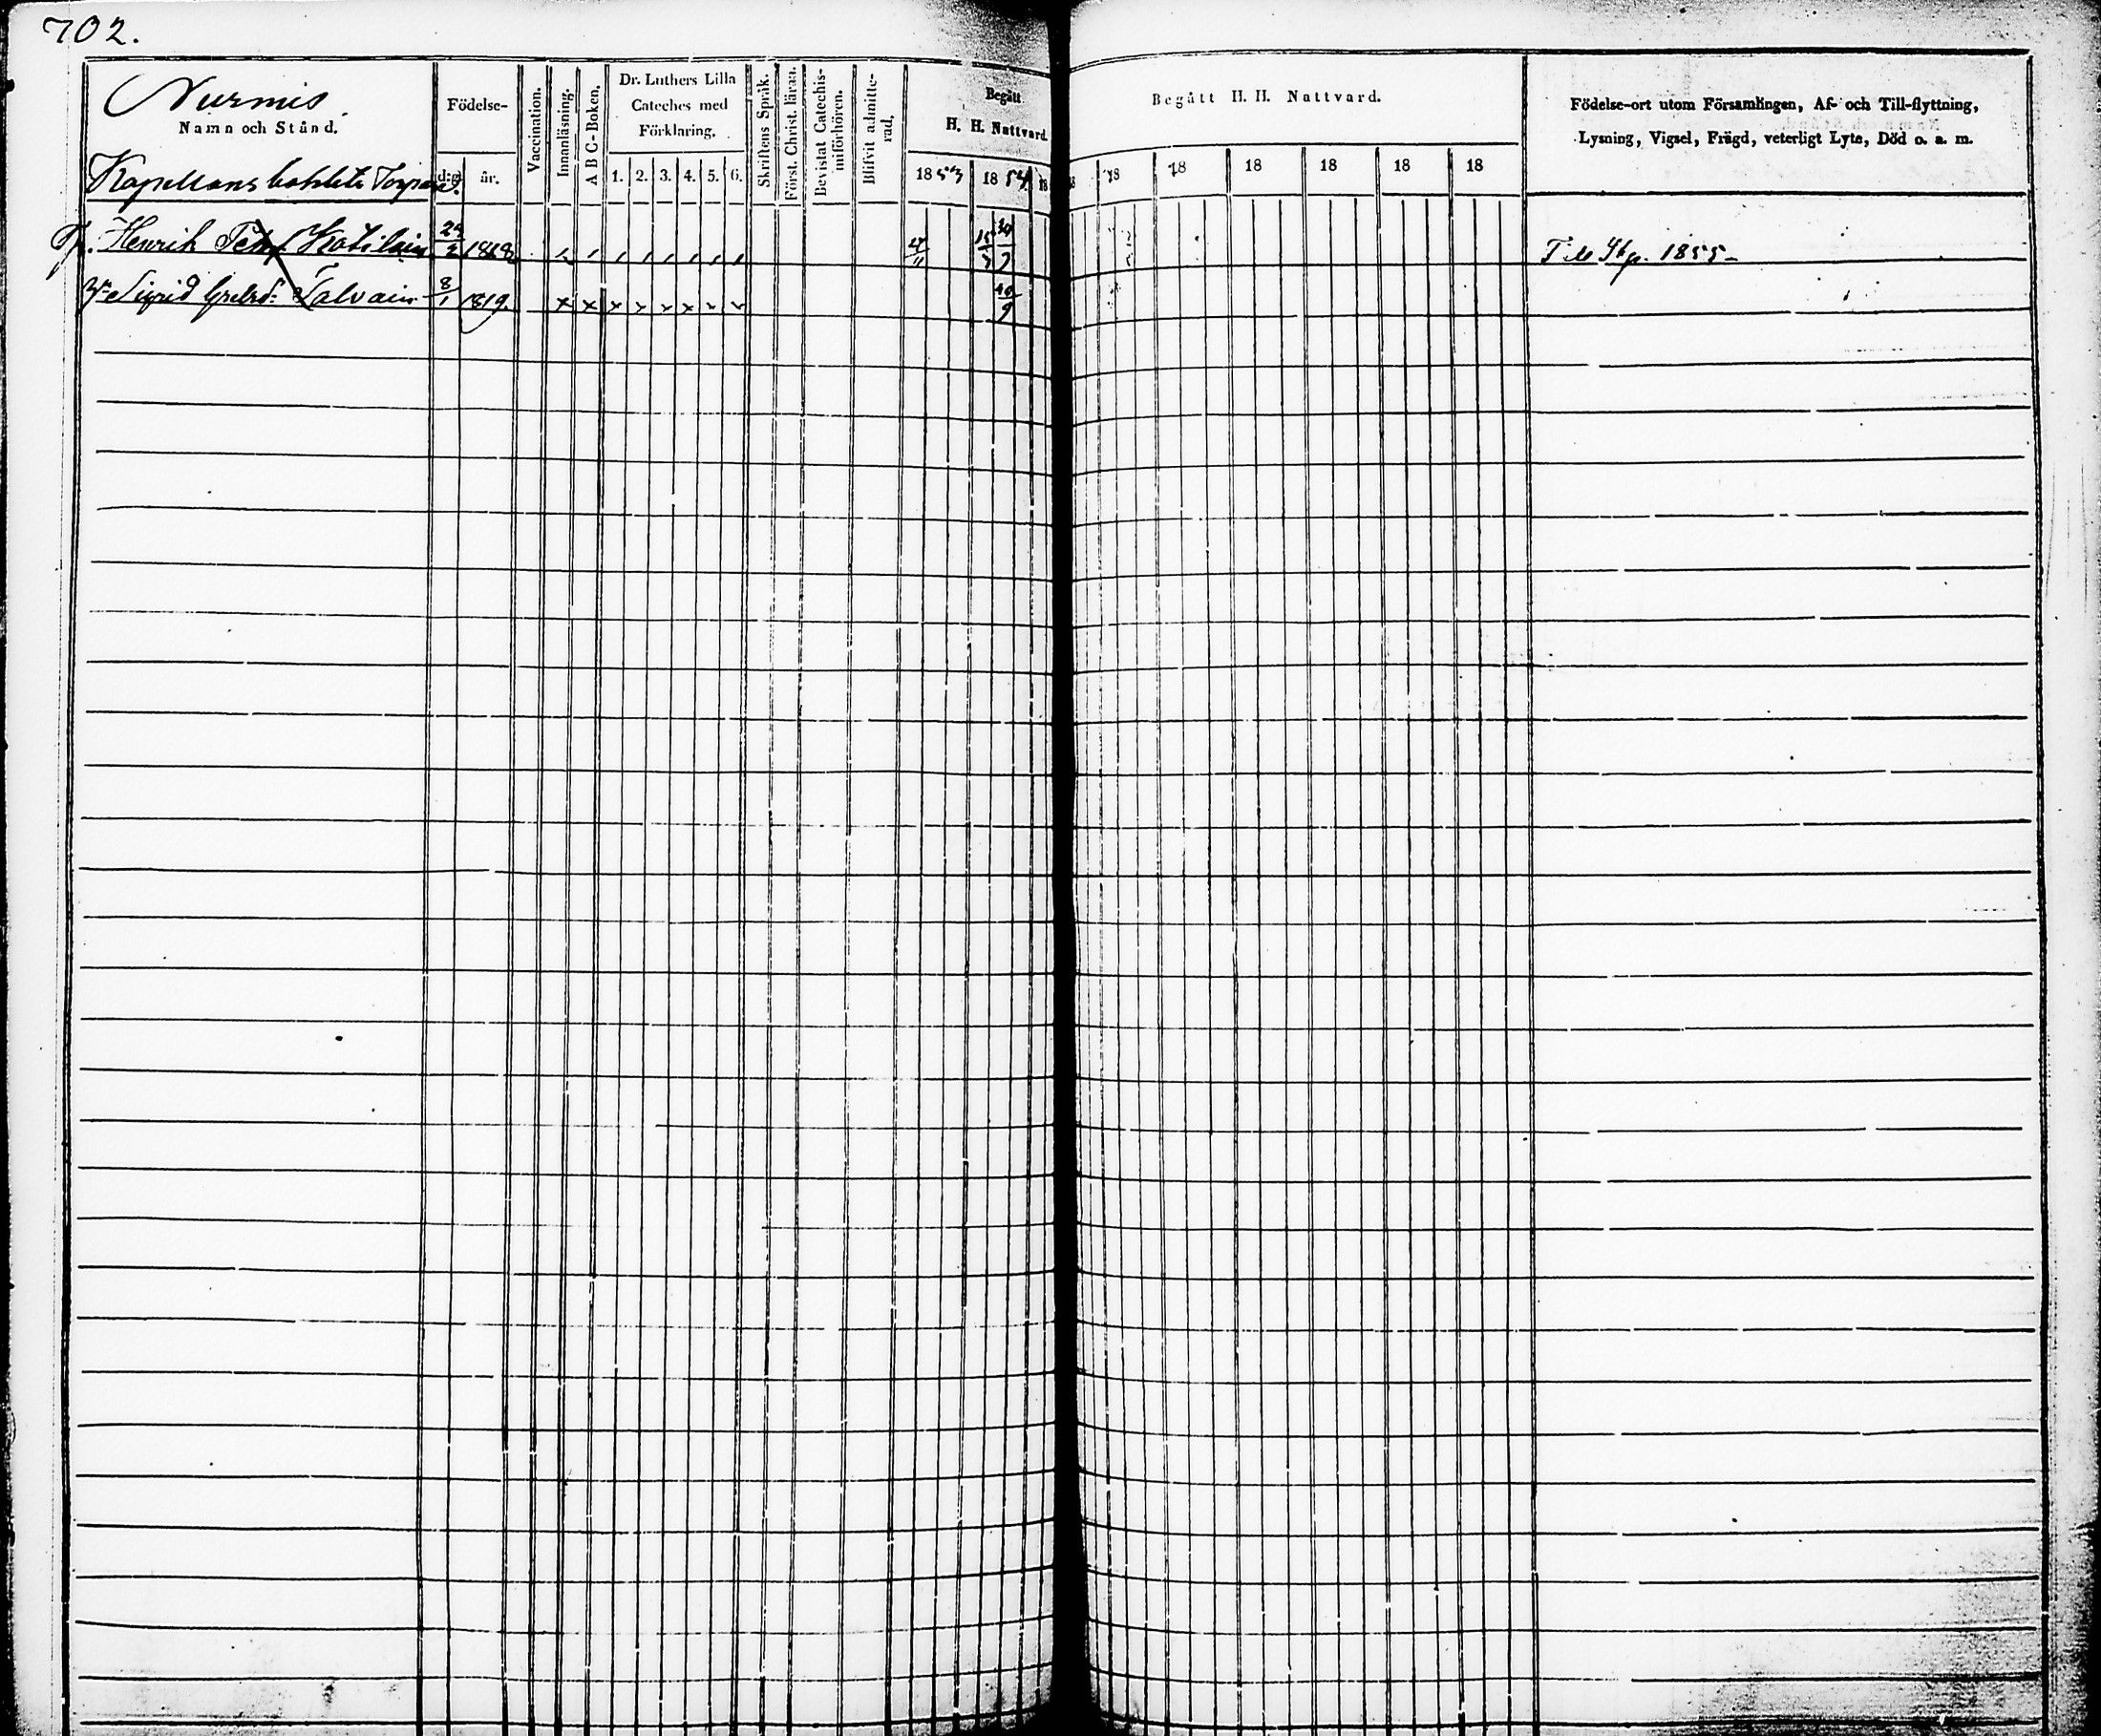 702.
Nurmis
Namn och Stånd.
Födelse-
d:g. år.
Vaccination.
Innanläsning.
A B C-Boken.
Dr. Luthers Lilla
Cateches med
Förklaring.
1. 2. 3. 4. 5. 6.
Skriftens Språk.
Först. Christ. läran.
Bevistat Catechis-
miförhören.
Blifvit admitte-
rad.
Begått
H. H. Nattvard.
1853 1854 18
Begått H. H. Nattvard.
18 18 18 18 18 18
Födelse-ort utom Församlingen, Af- och Till-flyttning,
Lysning, Vigsel, Frägd, veterligt Lyte, Död o. a. m.
Kapellans
Henrik Katilain 1818 Till 1855
Sigrid Talvain 8/1 1819.